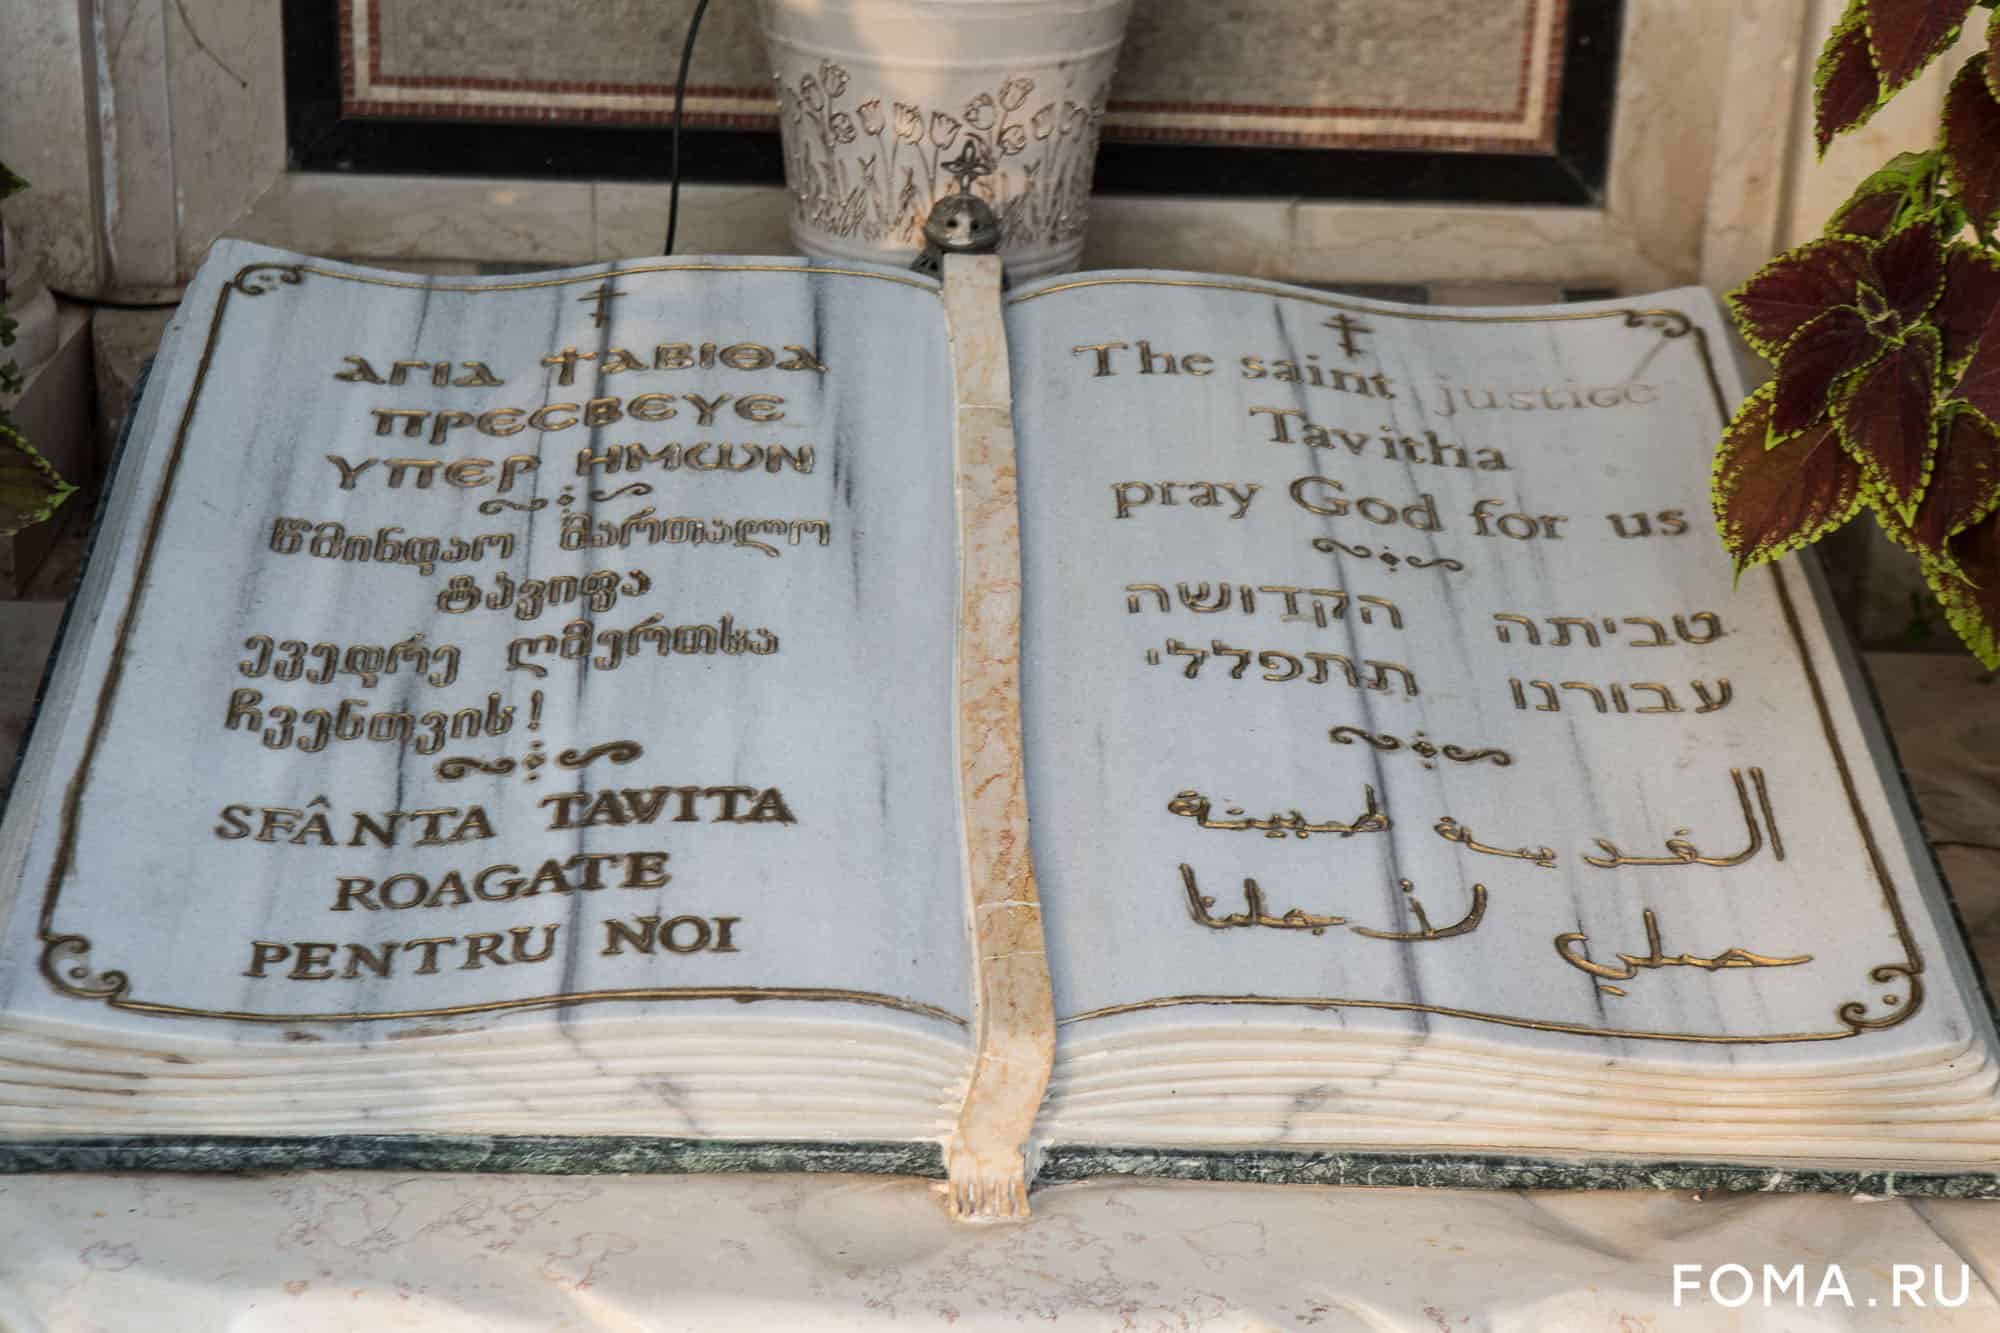 ΑΓΙΑ ΤΑΒΙΘΑ
ΠΡΕСΒΕΥΕ
ΥΠΕΡ ΗΜωΝ
წმინდაო მართალო
ტავიფა
ევედრე ღმერთსა
ჩვენთვის!
SFÂNTA TAVITA
ROAGATE
PENTRU NOI
The saint justice
Tavitha
pray God for us
טביתה הקדושה
עבורנו תתפללי
القديسة طبيثة
صلي لأجلنا
FOMA.RU